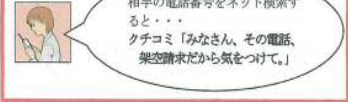 相手の電話番号をネット検索す
ると・・・
クチコミ「みなさん、その電話、
架空請求だから気をつけて。」